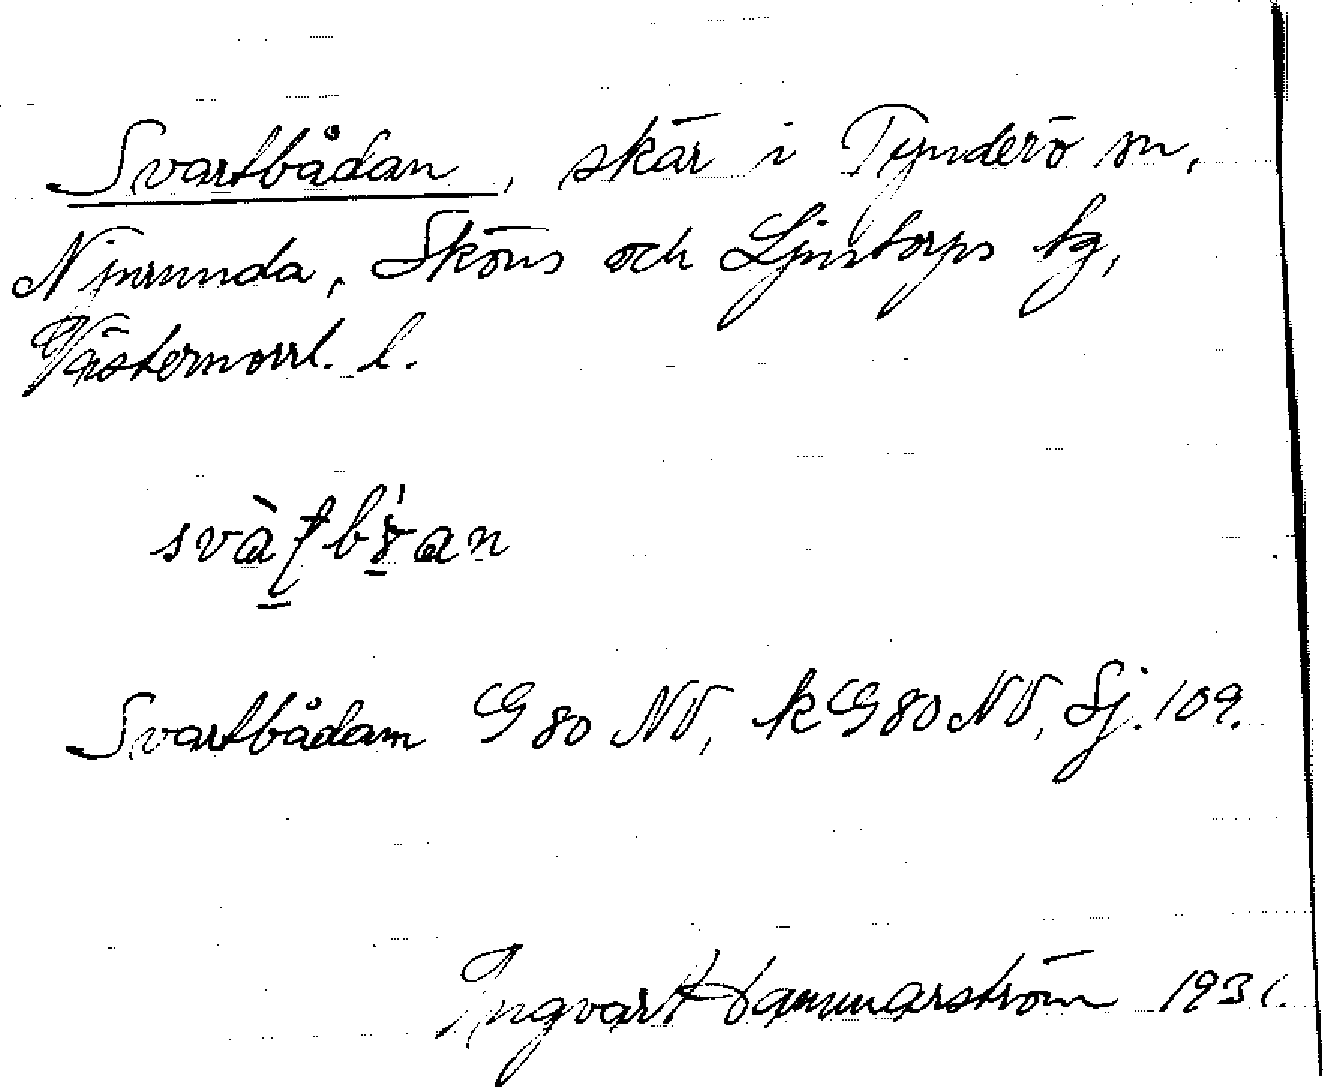 Svartbådan, skär i Tynderö sn,
Njurunda, Sköns och Ljustorps tg,
Västernorrl. l.
Svartbådam G 80 NV, kG 80 NV, Sj. 109.
Ingvar Hammarström 1931.